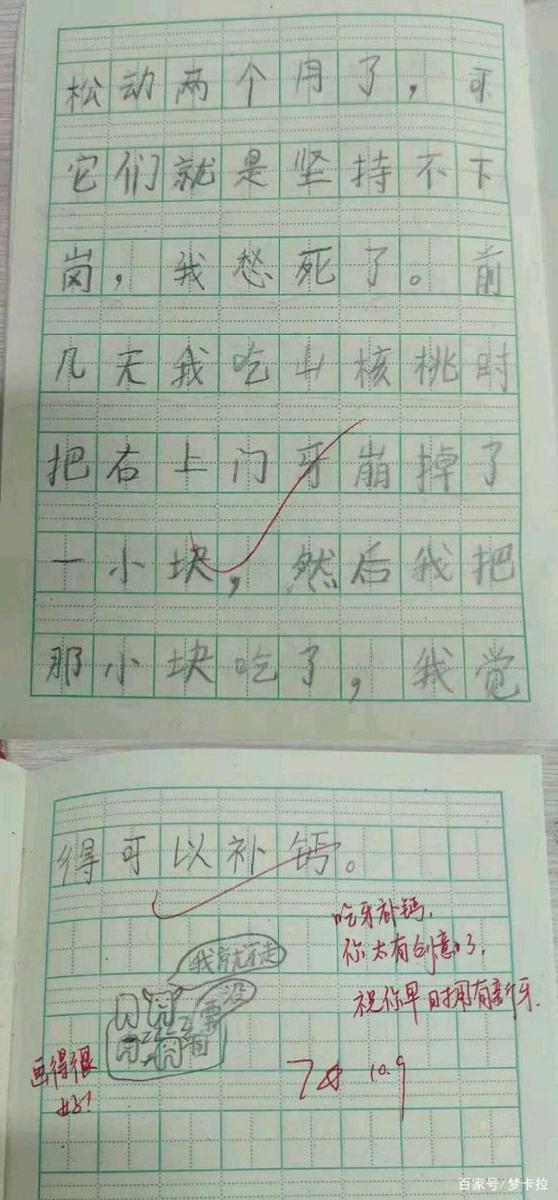 松动两个月了，可
它们就是坚持不下
岗，我愁死了。前
几天我吃山核桃时
把右上门牙崩掉了
一小块，然后我把
那小块吃了，我觉
得可以补钙。
吃牙补钙，
你太有创意了，
祝你早日拥有新牙．
我就不走
没
事
画得很
好！
10.9
百家号/梦卡拉